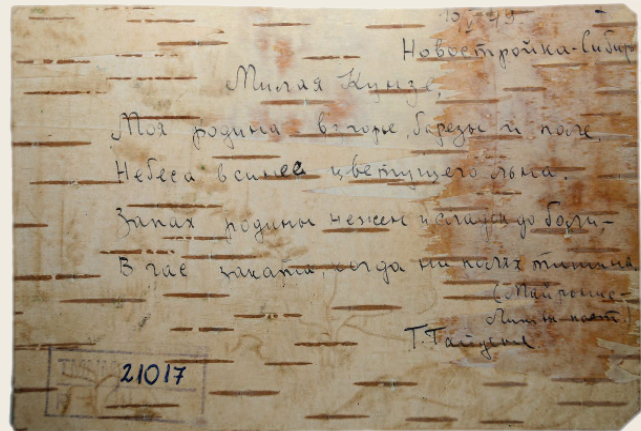 10/V-49
Новостройка-Сибирь
Милая Кунзе,
Моя родина в горе, березы и поле.
Небеса в синее цветущего льна.
Запах родины нежен и сладок до боли –
В час заката, когда на полях тишина
(Майронис –
поэт)
Т.
21017